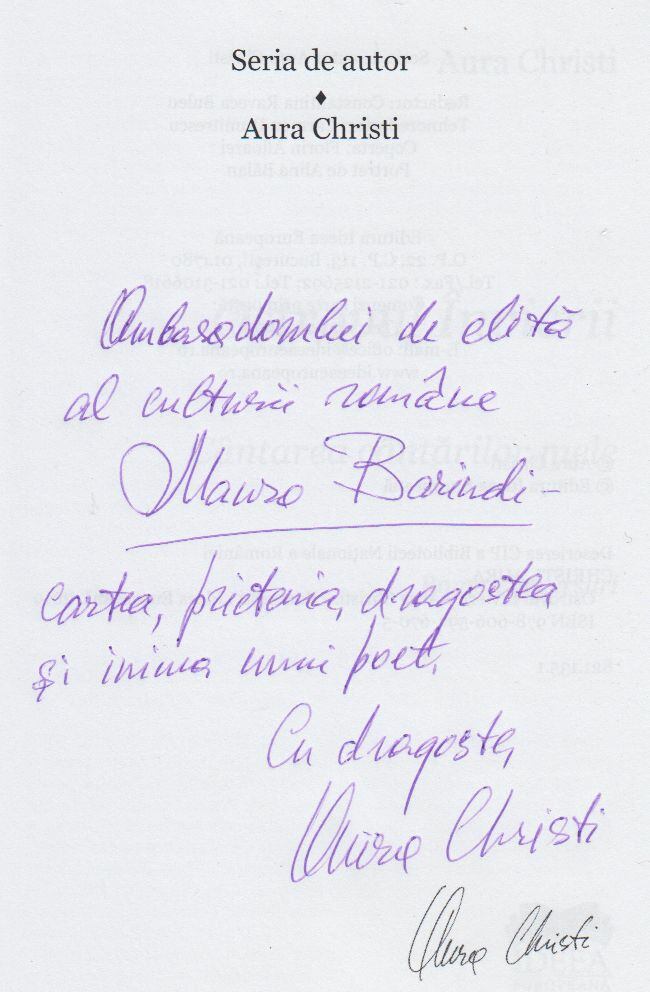 Seria de autor
♦
Aura Christi
Ambasadorului de elită
al culturii române
Mauro Barindi –
cartea, prietenia, dragostea
și inima unui poet.
Cu dragoste,
Aura Christi
Aura Christi